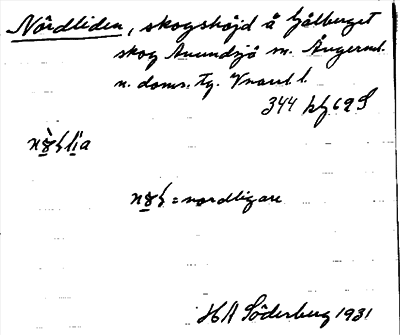 Nördliden, skogshöjd å Gålberget
skog Anundsjö sn. Ångerml.
n. doms. tg. Vnorrl. l.
344 kf 69 S
= nordligare
H A Söderberg 1931